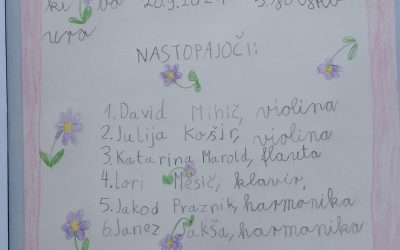 ki bo 20.9.2024
ura
NASTOPAJOČI:
1. David Mihič, violina
2. Julija Košir, violina
3. Katarina Marold, flavta
4. Lori Mesič, klavir,
5. Jakob Praznik, harmonika
6. Janez Jakša, harmonika